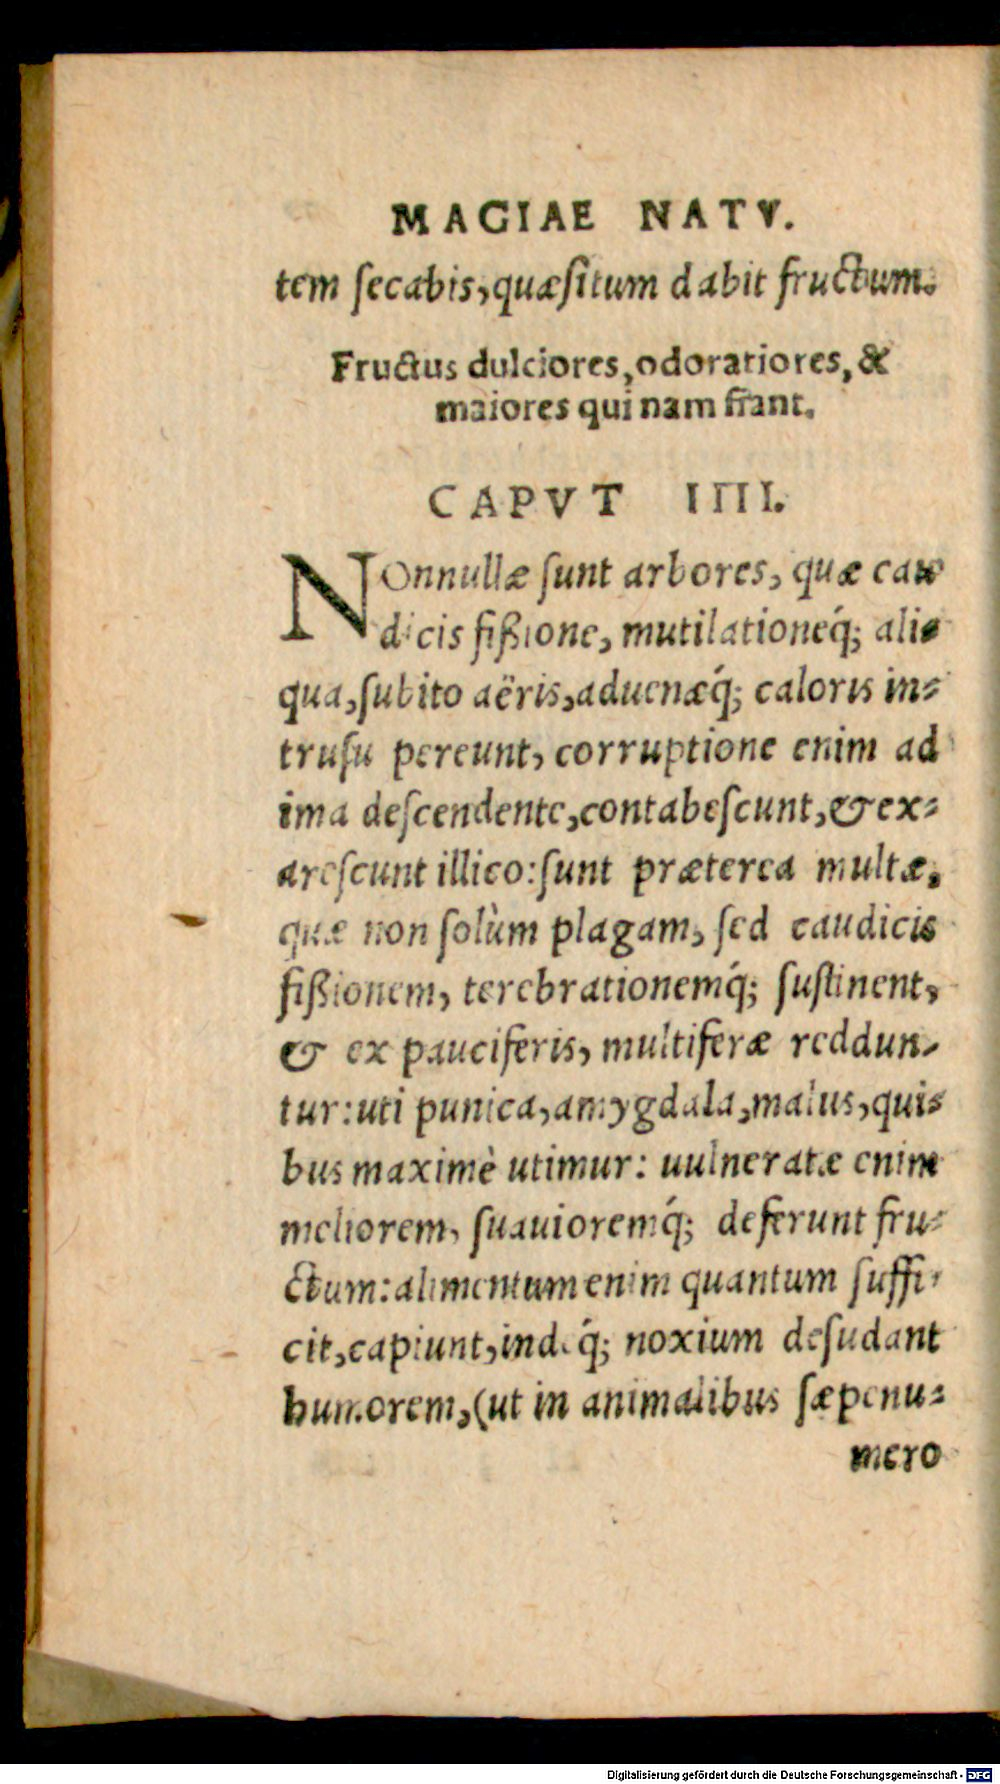 MAGIAE NATV.
tem ſecabis,quæſitum dabit fructum.
Fructus dulciores,odoratiores,&
maiores qui nam fiant.
CAPVT IIII.
NOnnullæ ſunt arbores, quæ cau
dicis fißione, mutilationeq́; ali=
qua,ſubito aëris,aduenæq́; caloris in=
truſu pereunt, corruptione enim ad
ima deſcendente,contabeſcunt,& ex=
areſcunt illico:ſunt præterea multæ,
quæ non ſolùm plagam, ſed caudicis
fißionem, terebrationemq́; ſuſtinent,
& ex pauciferis, multiferæ reddun=
tur:uti punica,amygdala,malus,qui=
bus maximè utimur: uulneratæ enim
meliorem, ſuauioremq́; deferunt fru=
ctum:alimentum enim quantum ſuffi=
cit,capiunt,indeq́; noxium deſudant
humorem,(ut in animalibus ſæpenu=
mero
Digitalisierung gefördert durch die Deutsche Forschungsgemeinschaft - DFG